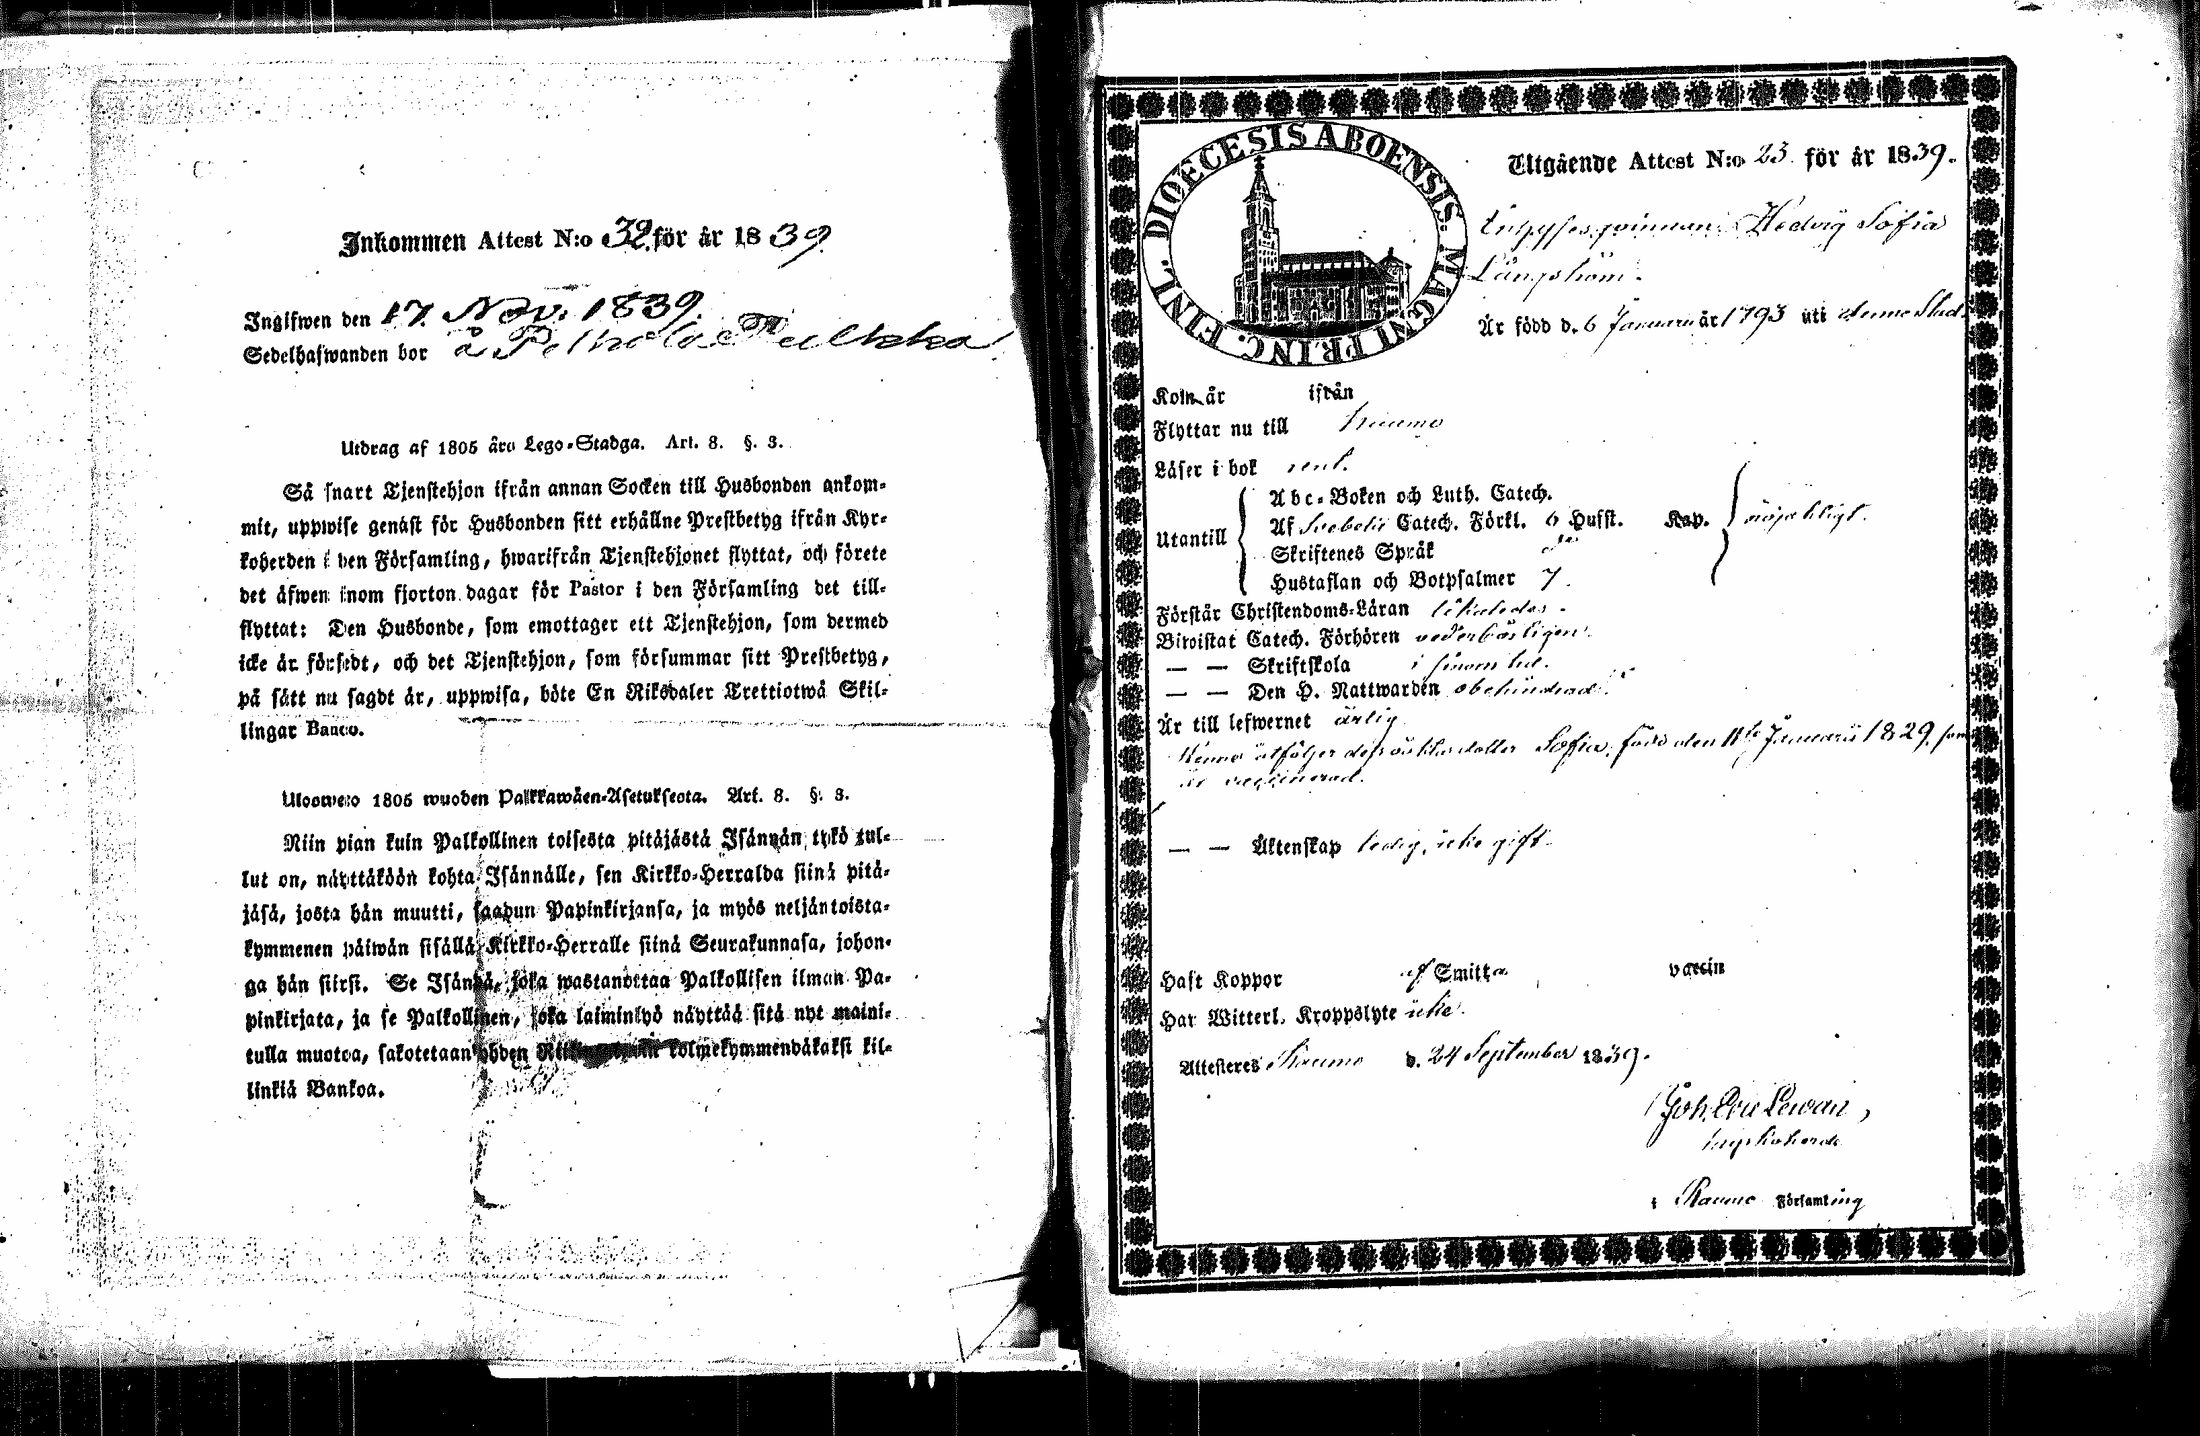 Inkommen Attest N:o 32. för år 1839.
Ingifwen den 17. Nov. 1839.
Sedelhafwanden bor å
Utdrag af 1805 års Lego-Stadga. Art. 8. §. 3.
Så snart Tjenstehjon ifrån annan Socken till Husbonden ankom-
mit, uppwise genast för Husbonden sitt erhållne Prestbetyg ifrån Kyr-
koherden i den Församling, hwarifrån Tjenstehjonet flyttat, och förete
det äfwen inom fjorton dagar för Pastor i den Församling det till-
flyttat: Den Husbonde, som emottager ett Tjenstehjon, som dermed
icke är försedt, och det Tjenstehjon, som försummar sitt Prestbetyg,
på sätt nu sagdt är, uppwisa, böte En Riksdaler Trettiotwå Skil-
lingar Banco.
Ulosweto 1805 wuoden Palkkawäen-Asetuksesta. Art. 8. §. 3.
Niin pian kuin Palkollinen toisesta pitäjästä Isännän tykö tul-
lut on, näyttäköön kohta Isännälle, sen Kirkko-Herralda siinä pitä-
jäsä, josta hän muutti, saadun Papinkirjansa, ja myös neljäntoista-
kymmenen päiwän sisällä Kirkko-Herralle siinä Seurakunnasa, johon-
ga hän siirsi. Se Isändä, joka wastanottaa Palkollisen ilman Pa-
pinkirjata, ja se Palkollinen, joka laiminlyö näyttää sitä nyt maini-
tulla muotoa, sakotetaan yhden kolmekymmendäkaksi kil-
linkiä Bankoa.
DIOECESIS ABOENSIS. MAGNI PRINC. FINL.
Utgående Attest N:o 23. för år 1839.
Hedvig Sofia
Långström.
Är född d. 6 Januari år 1793 uti denne Stad.
Kom år ifrån
Flyttar nu till
Läser i bok rent.
Utantill
Abc-Boken och Luth. Catech.
Af Svebelii Catech. Förkl. 6 Hufst. Kap. nöjaktigt.
Skriftenes Språk
Hustaflan och Botpsalmer 7.
Förstår Christendoms-Läran likaledes.
Biwistat Catech. Förhören vederbörligen.
— — Skriftskola i sinom tid.
— — Den H. Nattwarden obehindrad.
Är till lefwernet ärlig
Henne åtföljer dess oäkta dotter Sofia, född den 11te Januarii 1829, som
är vaccinerad.
— — Äktenskap ledig, icke gift.
Haft Koppor af Smitta vaccin
Har Witterl. Kroppslyte icke.
Attesteres Raumo d. 24 September 1839.
Joh. Lewan,
kyrkoherde
i Raumo Församling